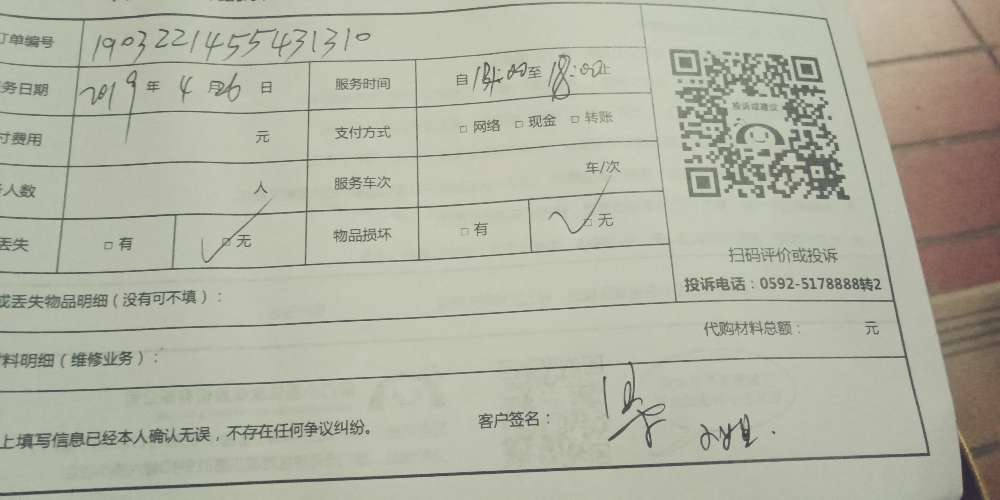 订单编号 1903221455431310
务日期 2019 年 4 月 26 日 服务时间 自 14:00 至 18:00 止
付费用 元 支付方式 □ 网络 □ 现金 □ 转账
人数 人 服务车次 车/次
丢失 □ 有 □ 无 物品损坏 □ 有 □ 无
投诉或建议
扫码评价或投诉
投诉电话：0592-5178888转2
或丢失物品明细（没有可不填）：
代购材料总额： 元
料明细（维修业务）：
上填写信息已经本人确认无误，不存在任何争议纠纷。
客户签名：